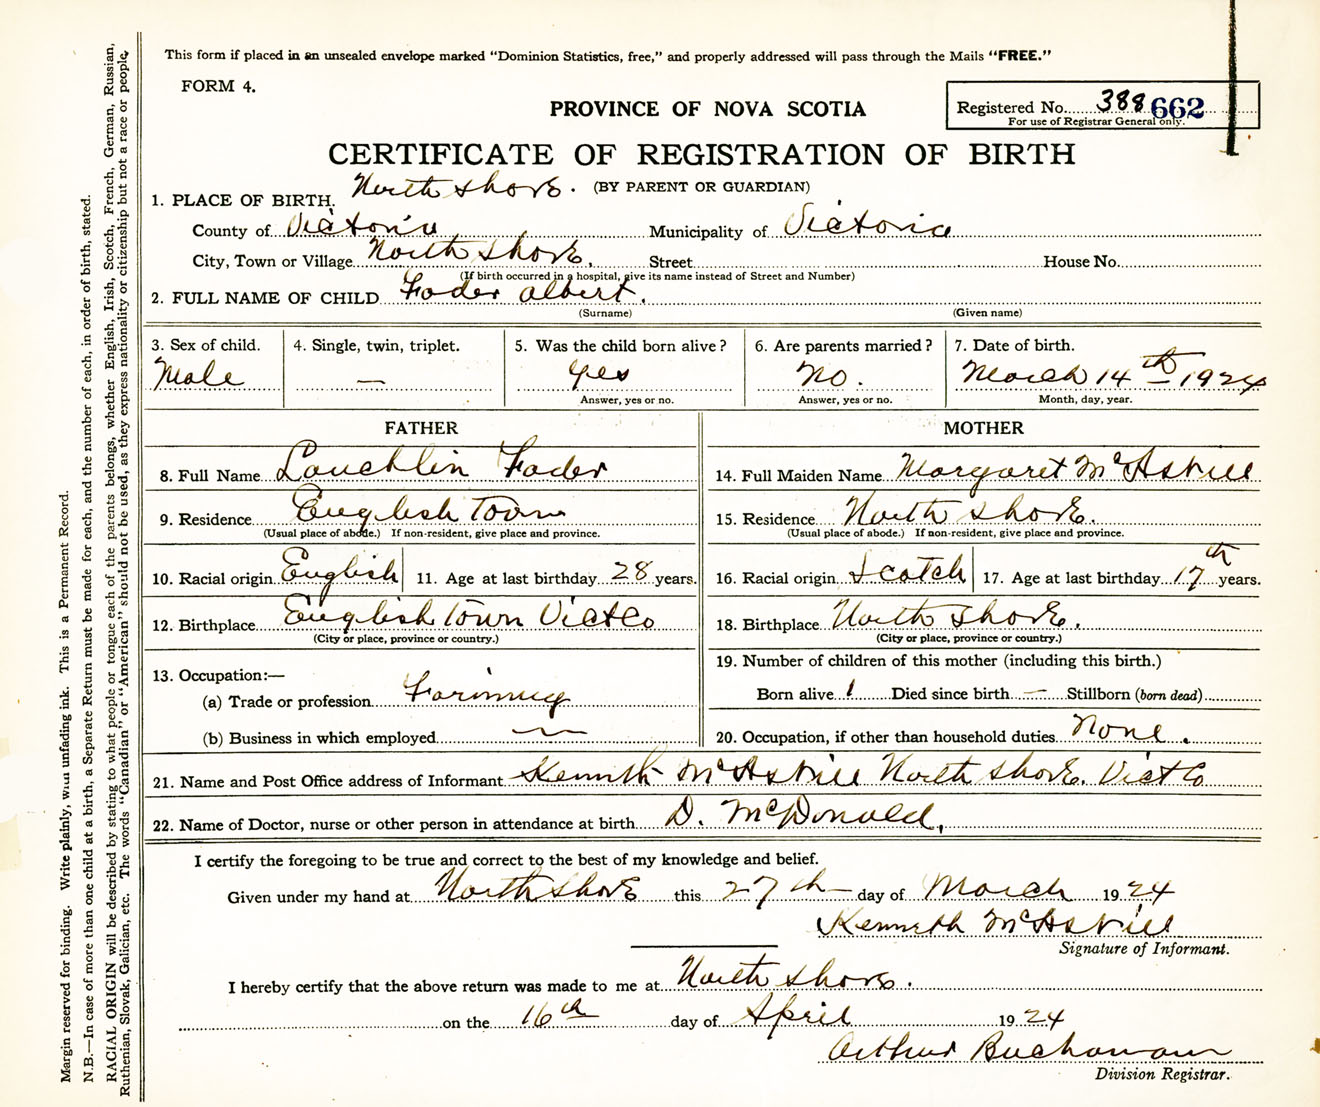 This form if placed in an unsealed envelope marked "Dominion Statistics, free," and properly addressed will pass through the Mails "FREE."
FORM 4.
PROVINCE OF NOVA SCOTIA
Registered No. 388 662
For use of Registrar General only.
CERTIFICATE OF REGISTRATION OF BIRTH
(BY PARENT OR GUARDIAN)
1. PLACE OF BIRTH. North Shore.
County of Victoria Municipality of Victoria
City, Town or Village North Shore. Street House No.
(If birth occurred in a hospital, give its name instead of Street and Number)
2. FULL NAME OF CHILD Fader Albert.
(Surname) (Given name)
3. Sex of child. 4. Single, twin, triplet. 5. Was the child born alive? 6. Are parents married? 7. Date of birth.
Male — Yes No. March 14th 1924
Answer, yes or no. Answer, yes or no. Month, day, year.
FATHER MOTHER
8. Full Name Lauchlin Fader 14. Full Maiden Name Margaret McAskill
9. Residence English Town 15. Residence North Shore.
(Usual place of abode.) If non-resident, give place and province. (Usual place of abode.) If non-resident, give place and province.
10. Racial origin English 11. Age at last birthday 28 years. 16. Racial origin Scotch 17. Age at last birthday 17th years.
12. Birthplace English Town Vict Co 18. Birthplace North Shore.
(City or place, province or country.) (City or place, province or country.)
13. Occupation:— 19. Number of children of this mother (including this birth.)
(a) Trade or profession Farming Born alive 1 Died since birth — Stillborn (born dead)
(b) Business in which employed — 20. Occupation, if other than household duties None.
21. Name and Post Office address of Informant Kenneth McAskill North Shore. Vict Co
22. Name of Doctor, nurse or other person in attendance at birth D. McDonald,
I certify the foregoing to be true and correct to the best of my knowledge and belief.
Given under my hand at North Shore this 27th day of March 1924
Kenneth McAskill
Signature of Informant.
I hereby certify that the above return was made to me at North Shore.
on the 16th day of April 1924
Arthur Buchanan
Division Registrar.
Margin reserved for binding. Write plainly, with unfading ink. This is a Permanent Record.
N.B.—In case of more than one child at a birth, a Separate Return must be made for each, and the number of each, in order of birth, stated.
RACIAL ORIGIN will be described by stating to what people or tongue each of the parents belongs, whether English, Irish, Scotch, French, German, Russian,
Ruthenian, Slovak, Galician, etc. The words "Canadian" or "American" should not be used, as they express nationality or citizenship but not a race or people.